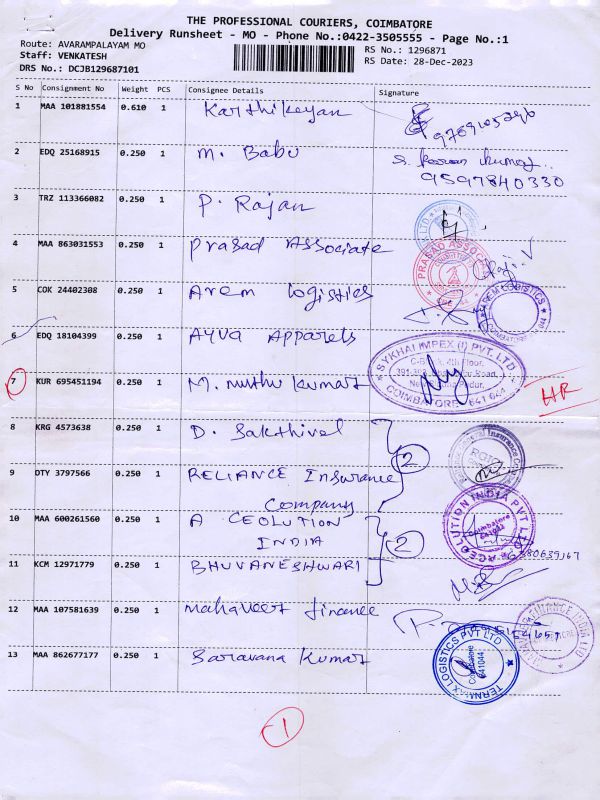 THE PROFESSIONAL COURIERS, COIMBATORE
Delivery Runsheet - MO - Phone No.:0422-3505555 - Page No.:1
Route: AVARAMPALAYAM MO
Staff: VENKATESH
DRS No.: DCJB129687101
RS No.: 1296871
RS Date: 28-Dec-2023
S No Consignment No Weight PCS Consignee Details Signature
1 MAA 101881554 0.610 1 Karthikeyan
2 EDQ 25168915 0.250 1 M. Babu
9597840330
3 TRZ 113366082 0.250 1 P. Rajan
4 MAA 863031553 0.250 1 Prasad Associate
PRASAD ASSOC
5 COK 24402308 0.250 1 Arem logistics
AREM LOGISTICS
COIMBATORE
6 EDQ 18104399 0.250 1 Ayva Apparels
SYKHAI IMPEX (I) PVT. LTD.
4th Floor,
Road,
COIMBATORE - 641 044
7 KUR 695451194 0.250 1 M. Muthu Kumar
HR
8 KRG 4573638 0.250 1 D. Sakthivel
2
General Insurance
9 DTY 3797566 0.250 1 RELIANCE Insurance
Company
10 MAA 600261560 0.250 1 A CEOLUTION
INDIA
2
ACEOLUTION INDIA PVT LTD
Coimbatore
641044
11 KCM 12971779 0.250 1 BHUVANESHWARI
12 MAA 107581639 0.250 1 Mahaveer finance
FINANCE INDIA LTD
13 MAA 862677177 0.250 1 Saravana Kumar
TERNMAX LOGISTICS PVT LTD
Coimbatore
641044
1